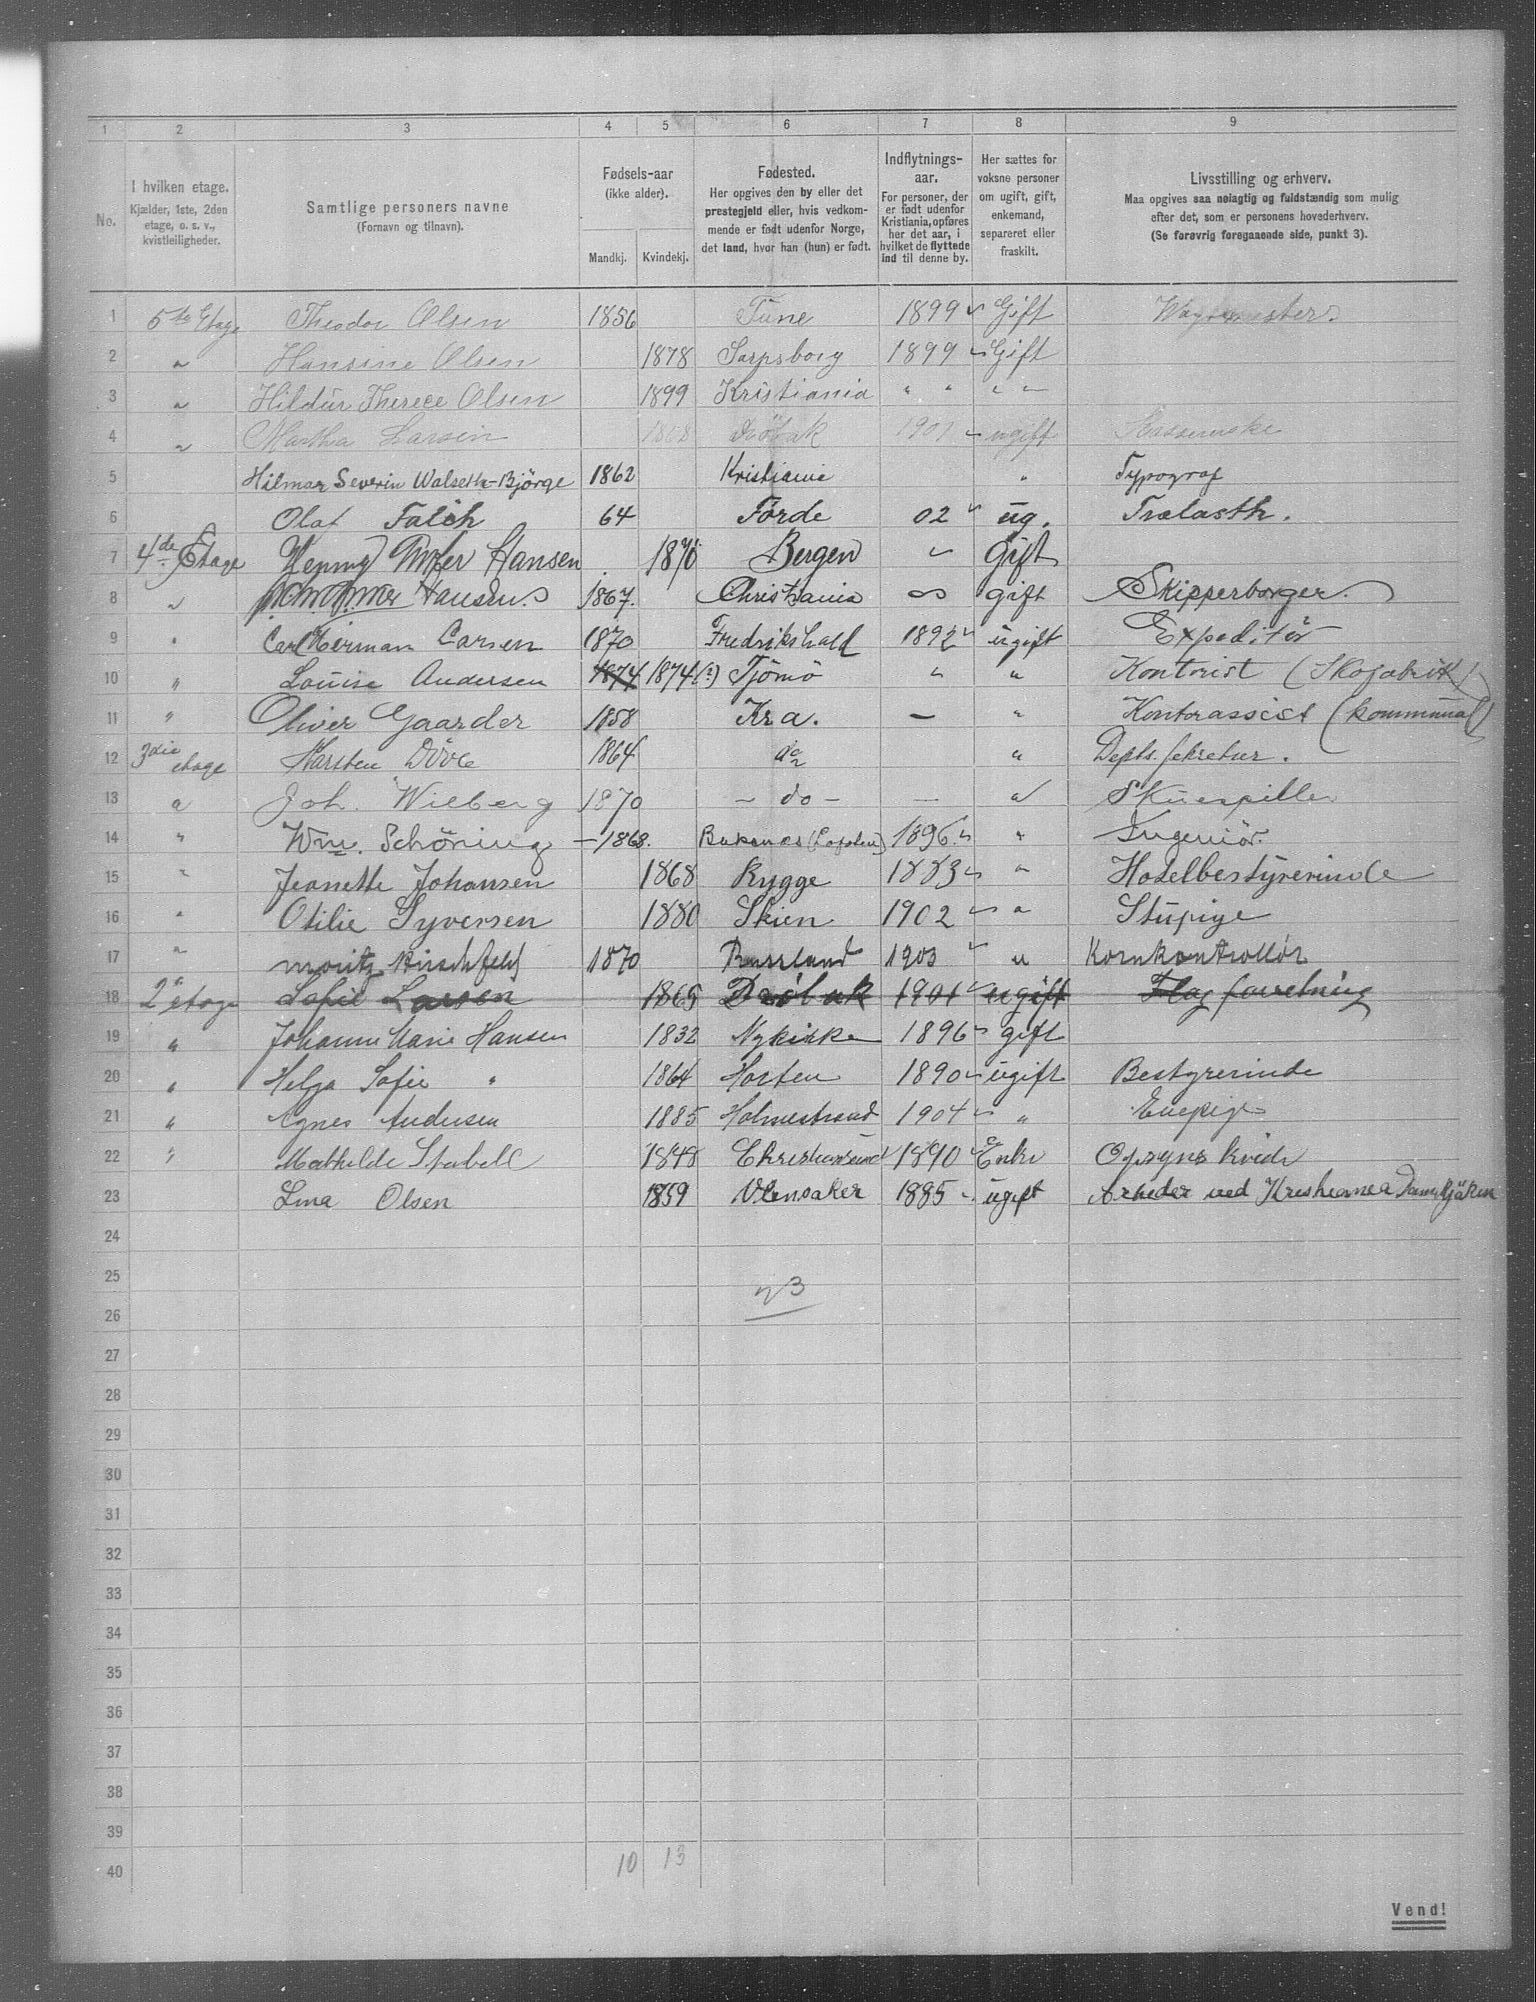 1 2 3 4 5 6 7 8 9
No.
I hvilken etage.
Kjælder, 1ste, 2den
etage, o. s. v.,
kvistleiligheder.
Samtlige personers navne
(Fornavn og tilnavn).
Fødsels-aar
(ikke alder).
Mandkj. Kvindekj.
Fødested.
Her opgives den by eller det
prestegjeld eller, hvis vedkom-
mende er født udenfor Norge,
det land, hvor han (hun) er født.
Indflytnings-
aar.
For personer, der
er født udenfor
Kristiania, opføres
her det aar, i
hvilket de flyttede
ind til denne by.
Her sættes for
voksne personer
om ugift, gift,
enkemand,
separeret eller
fraskilt.
Livsstilling og erhverv.
Maa opgives saa nøiagtig og fuldstændig som mulig
efter det, som er personens hovederhverv.
(Se forøvrig foregaaende side, punkt 3).
1 5te Etage Theodor Olsen 1856 Tune 1899 Gift
2 " Hansine Olsen 1878 Sarpsborg 1899 Gift
3 " Hildur Therece Olsen 1899 Kristiania " " " "
4 " Martha Larsen Drøbak 1901 ugift
5 Hilmar Severin Walseth-Bjørge 1862 Kristiania " Typograf
6 Olaf Falch 64 Førde 02 ug. Trælasth.
7 4de Etage Henny Hansen 1870 Bergen " Gift
8 " Hansen 1867. Christiania " gift Skipperborger.
9 " Carl Herman Carsen 1870 Fredrikshald 1892 ugift Expeditør
10 " Louise Andersen 1874 1874 (?) Tjömö " " Kontorist (Skofabrik)
11 " Oliver Gaarder 1858 Kra. — " Kontorassist (kommunal)
12 3die etage Karsten Dövle 1864 do " Depts. sekretær.
13 " Joh. Wiberg 1870 — do — — " Skuespiller
14 " Wm. Schöning — 1868. Buksnes (Lofoten) 1896 " Ingeniör.
15 " Jeanette Johansen 1868 Rygge 1883 " Hotelbestyrerinde
16 " Otilie Syversen 1880 Skien 1902 " Stupige
17 " Moritz Hirschfeld 1870 Russland 1903 " Kornkontrollör
18 2 etage Sofie Larsen 1865 Drøbak 1901 ugift Flag forretning
19 " Johanne Marie Hansen 1832 Nykirke 1896 gift
20 " Helga Sofie " 1864 Horten 1890 ugift Bestyrerinde
21 " Agnes Andersen 1885 Holmestrand 1904 " Enepige
22 " Mathilde Stabell 1848 Christiansund 1890 Enke Opsyns kvinde
23 Lina Olsen 1859 Ullensaker 1885 ugift Arbeider ved Kristiania Dampkjøken
24
25
26
23
27
28
29
30
31
32
33
34
35
36
37
38
39
40 10 13
Vend!